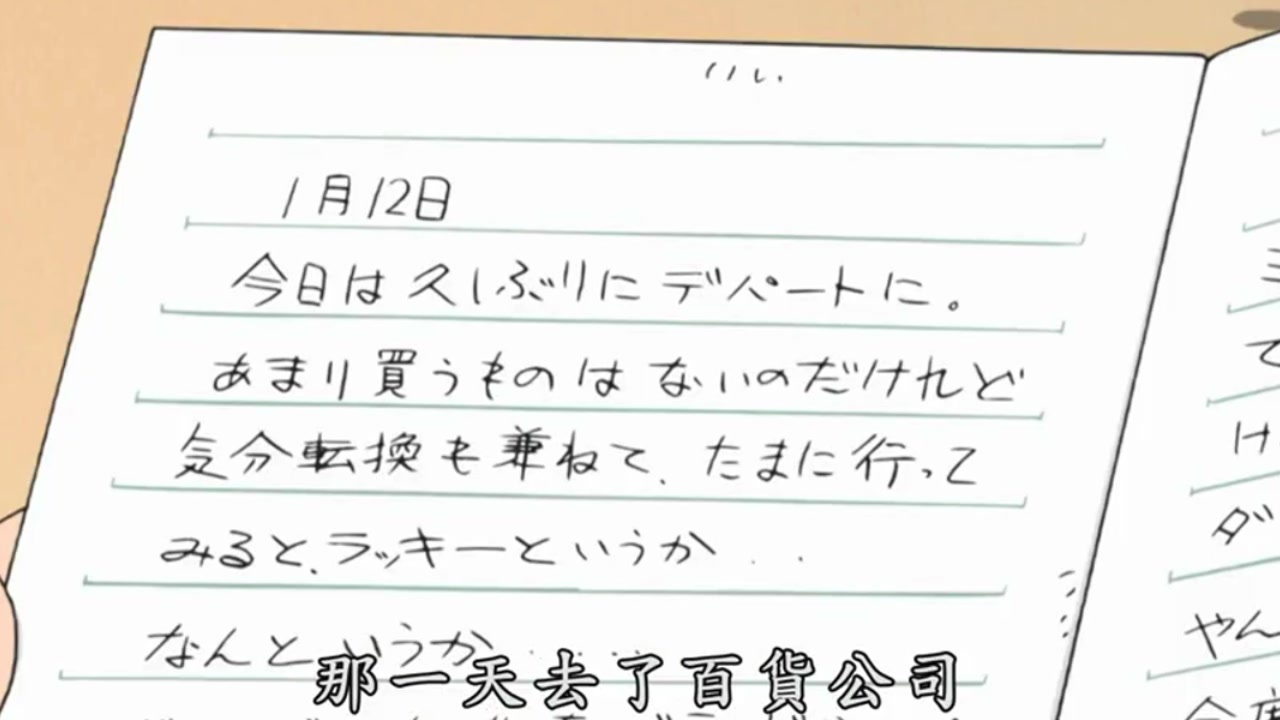 1月12日
今日は久しぶりにデパートに。
あまり買うものはないのだけれど
気分転換も兼ねて、たまに行って
みると、ラッキーというか...
なんというか.....
那一天去了百貨公司
け
ダ
やん